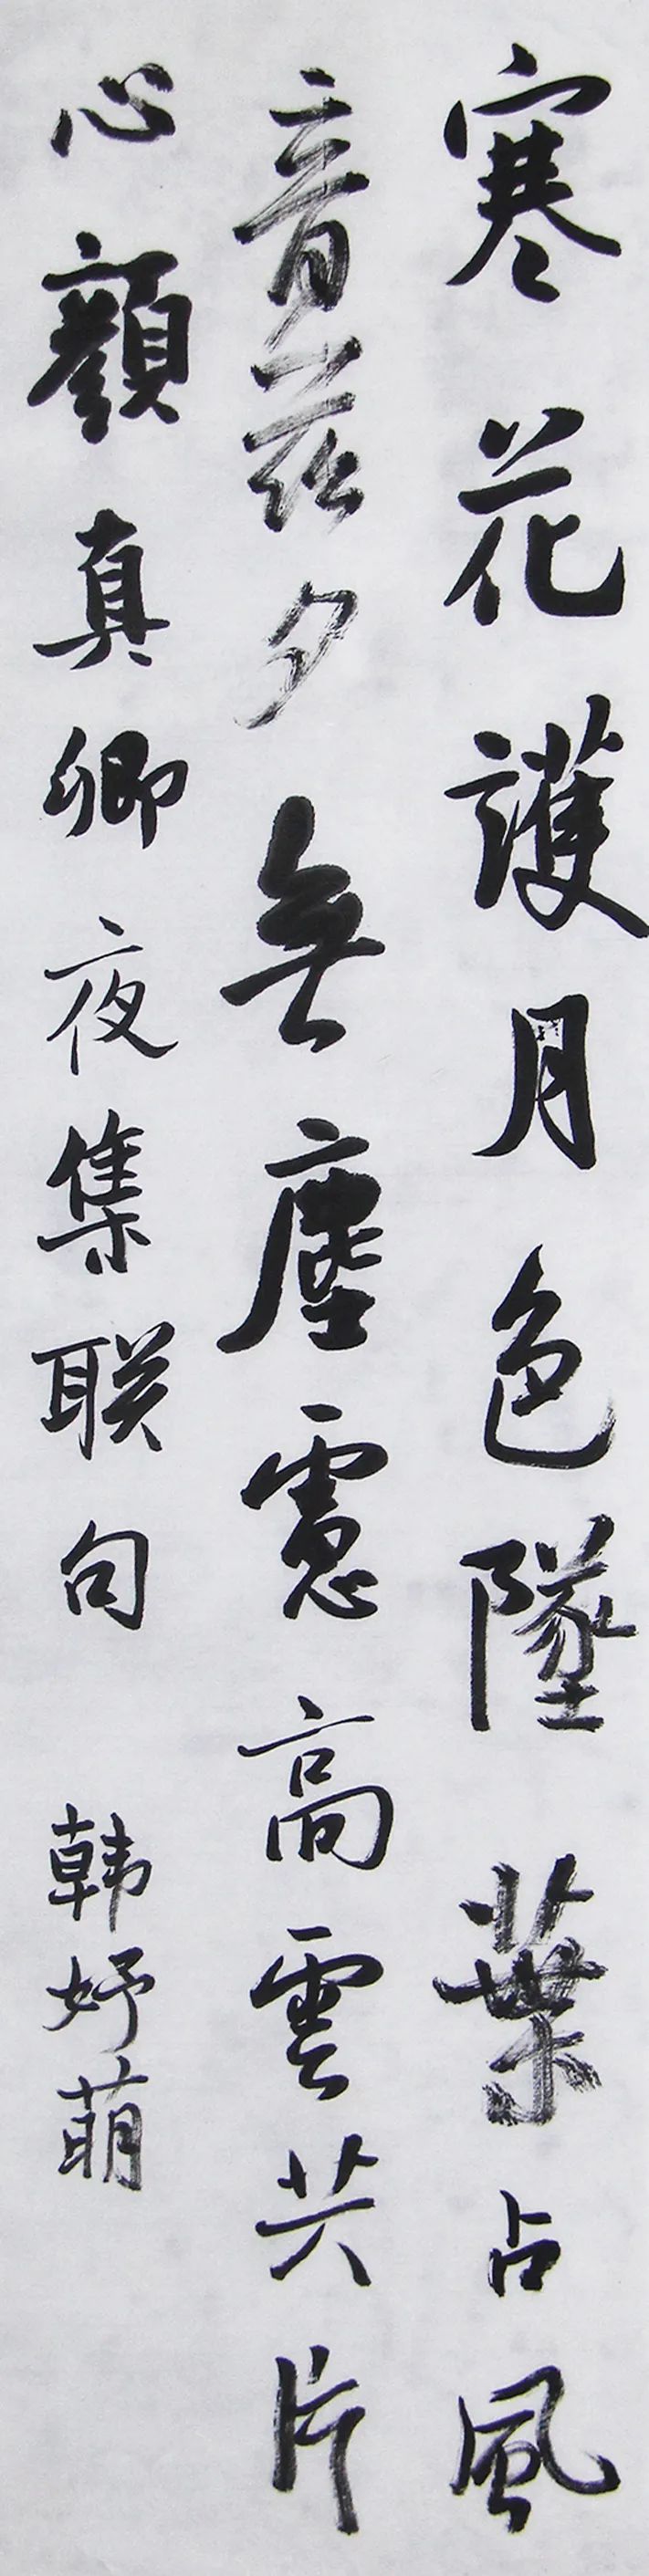 寒花護月色墜葉占風
音茲夕無塵慮高雲共片
心顏真卿夜集联句 韩妤萌